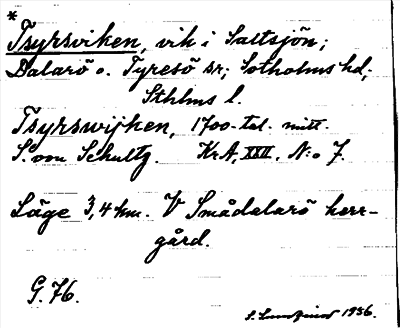 *
Tsyrsviken, vik i Saltsjön;
Dalarö o. Tyresö sr; Sotholms hd;
Sthlms l.
Tsyrswijken, 1700-tal. mitt.
S. von Schultz. KrA, XXII, N:o 7.
Läge 3,4 km. V Smådalarö herr-
gård.
G. 76.
S. 1936.